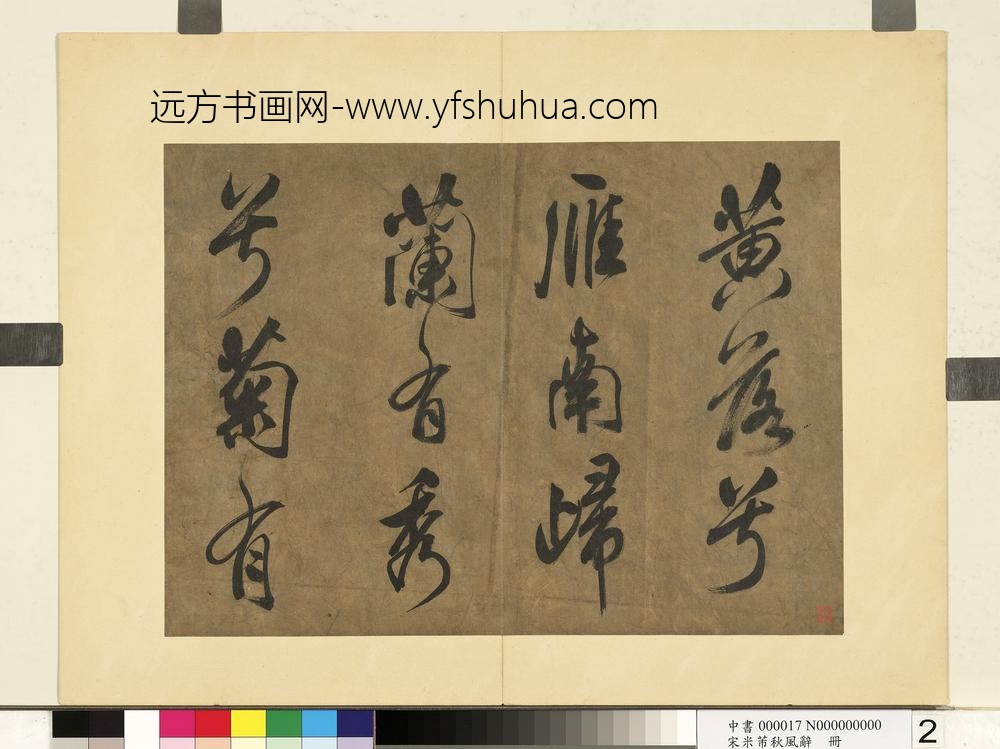 远方书画网-www.yfshuhua.com
黄落兮
雁南歸
蘭有秀
兮菊有
中書 000017 N000000000
宋米芾秋風辭 冊
2